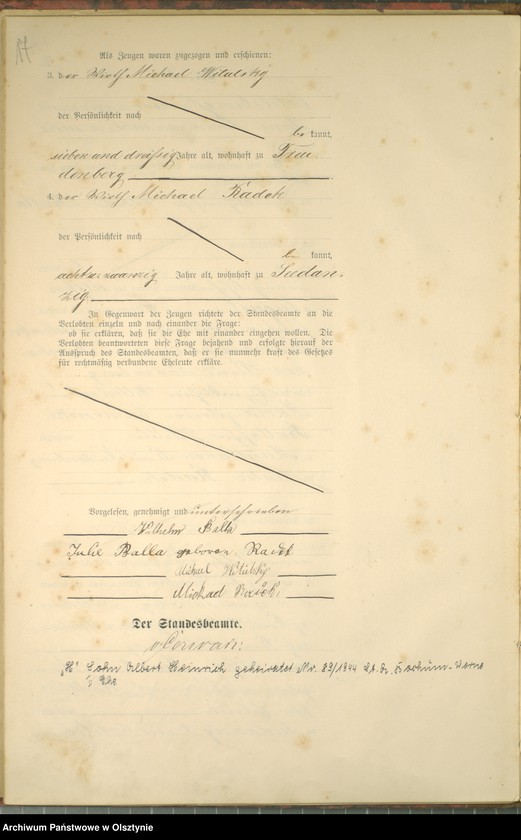 17
Als Zeugen waren zugezogen und erschienen:
3. der Wirth Michael Witulsky
der Persönlichkeit nach
be kannt,
sieben und dreißig Jahre alt, wohnhaft zu Freu
denberg
4. der Wirth Michael Radek
der Persönlichkeit nach
be kannt,
achtu.zwanzig Jahre alt, wohnhaft zu
zig
In Gegenwart der Zeugen richtete der Standesbeamte an die
Verlobten einzeln und nach einander die Frage:
ob sie erklären, daß sie die Ehe mit einander eingehen wollen. Die
Verlobten beantworteten diese Frage bejahend und erfolgte hierauf der
Ausspruch des Standesbeamten, daß er sie nunmehr kraft des Gesetzes
für rechtmäßig verbundene Eheleute erkläre.
Vorgelesen, genehmigt und unterschrieben
Wilhelm Balla
Julie Balla geboren
Michael Witulsky
Michael
Der Standesbeamte.
"H" Sohn Albert Heinrich geheiratet Nr. 83/1944 St. A. Bochum-Werne
I Ehe
Archiwum Państwowe w Olsztynie